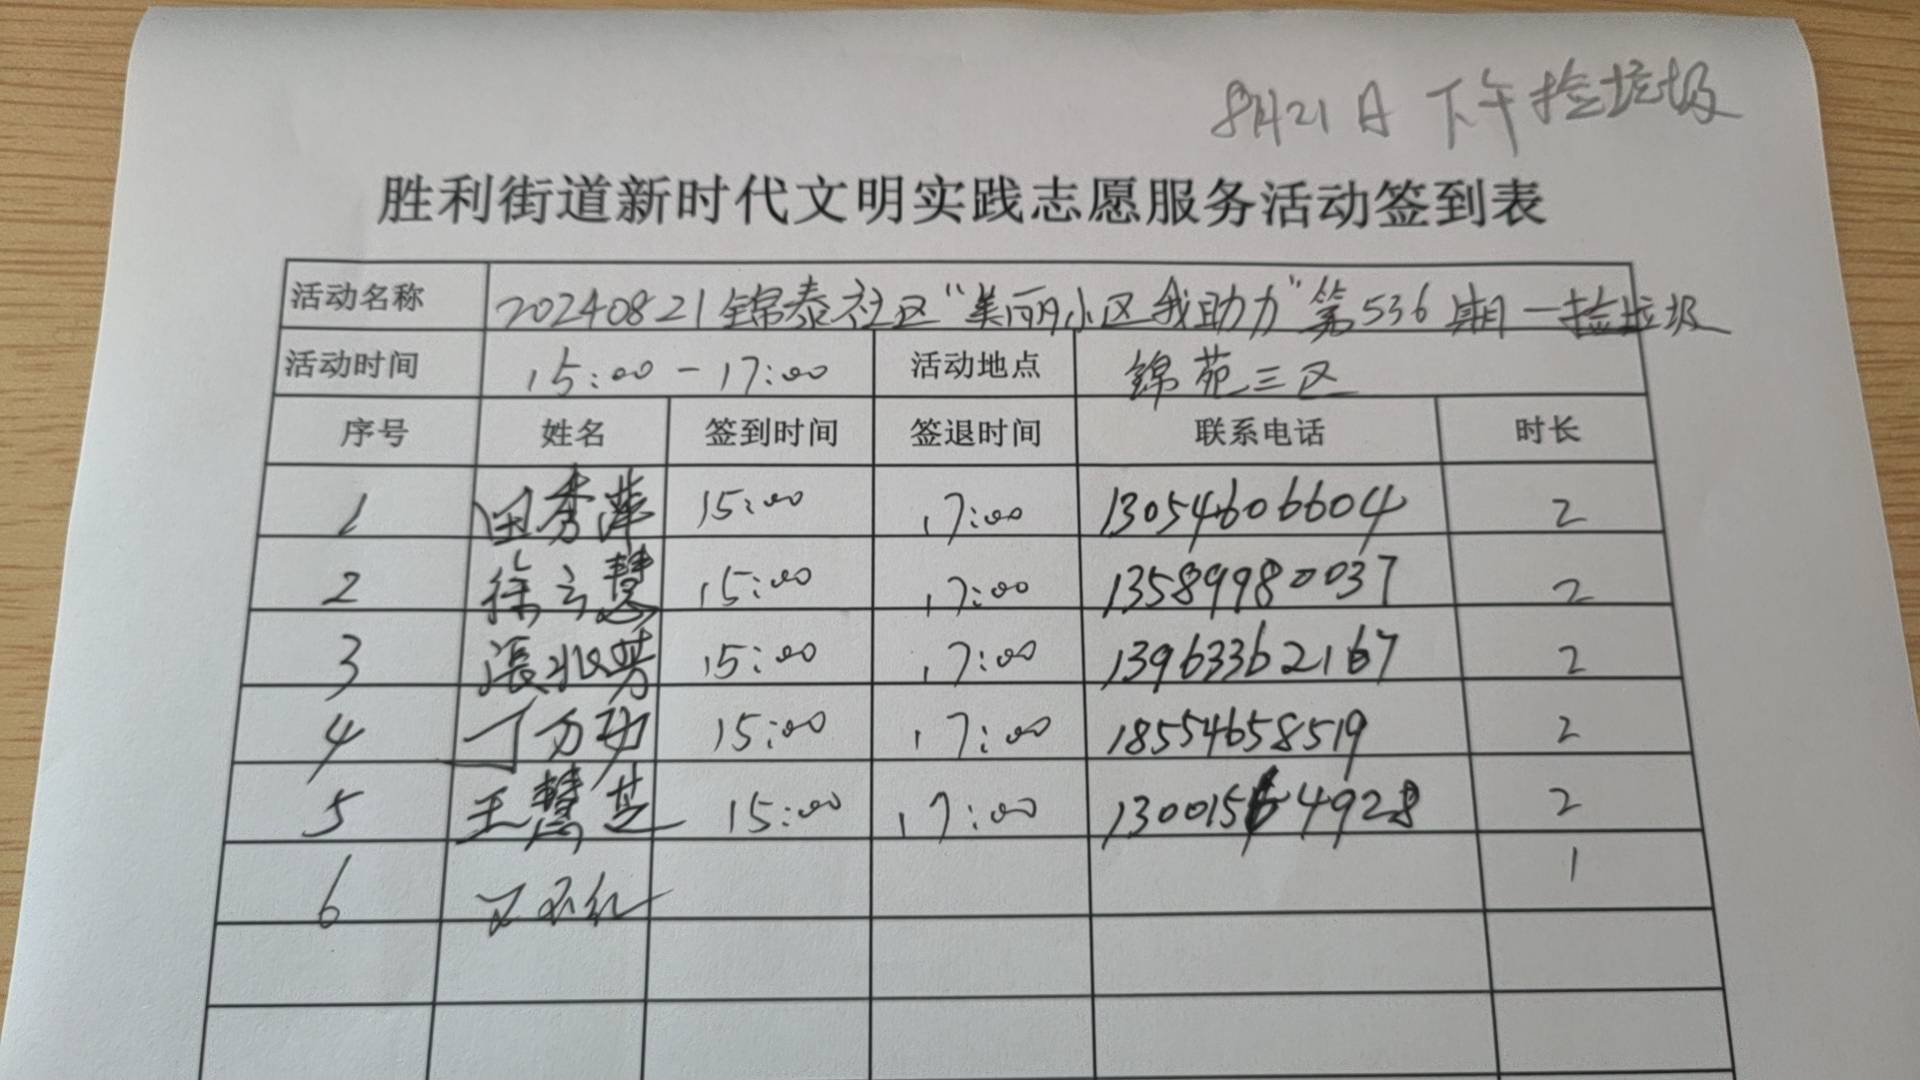 8月21日 下午捡垃圾
胜利街道新时代文明实践志愿服务活动签到表
活动名称 20240821锦泰社区“美丽小区我助力”第536期—捡垃圾
活动时间 15:00-17:00 活动地点 锦苑三区
序号 姓名 签到时间 签退时间 联系电话 时长
1 田秀萍 15:00 17:00 13054606604 2
2 徐云慧 15:00 17:00 13589980037 2
3 張兆芳 15:00 17:00 13963362167 2
4 丁方功 15:00 17:00 18554658519 2
5 王慧芝 15:00 17:00 13001564928 2
6 1